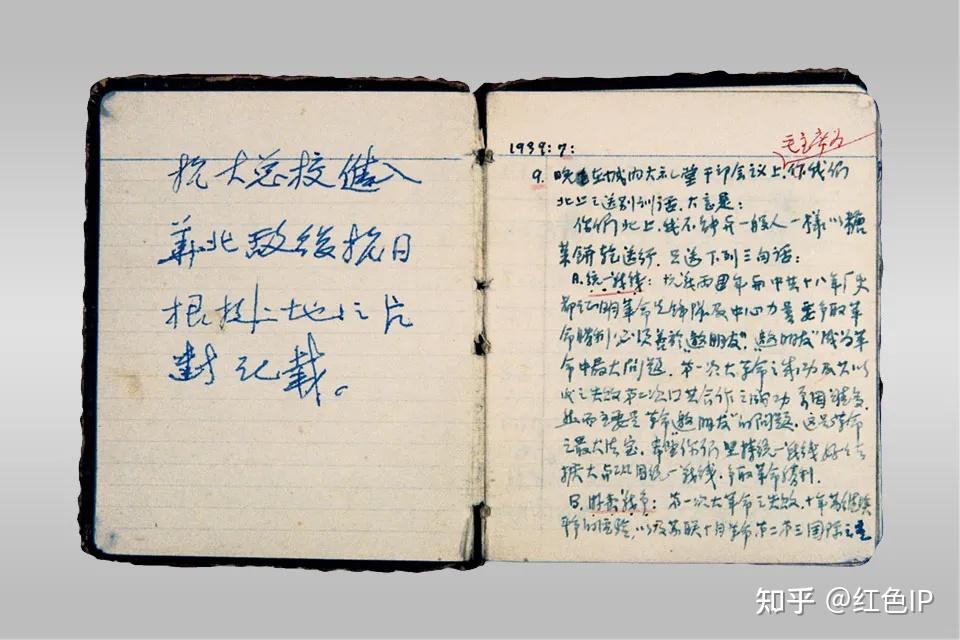 抗大总校进入
华北敌後抗日
根据地之片
对记载。
1939:7:
毛主席为
9. 晚在城内大礼堂干部会议上，作我们
北上之送别训话，大意是：
你们北上，我不能再一般人一样以糖
菓餅乾送行，只送下列三句话：
A. 统一战线：抗战两周年与中共十八年历史
都证明革命先锋队及中心力量要争取革
命胜利必须善於"邀朋友"，"邀朋友"成为革
命中最大问题。第一次大革命之成功及其以
次之失败第二次国共合作之成功
主要是革命"邀朋友"的问题，这是革命
之最大法宝，希望你们坚持统一战线好好去
扩大巩固统一战线，争取革命胜利。
B. 游击战争：第一次大革命之失败，十年
的经验，以及苏联十月革命第二第三国际之
知乎 @红色IP